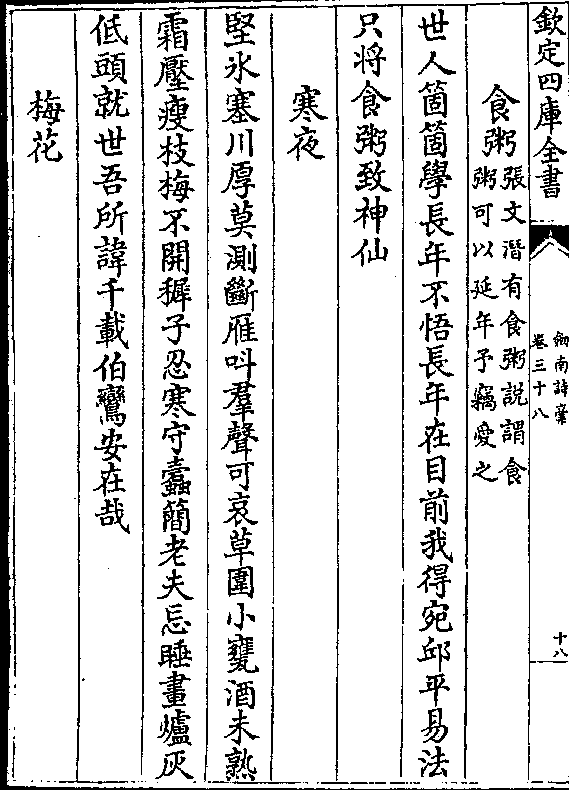 欽定四庫全書
劍南詩稾
卷三十八
十八
食粥張文潛有食粥說謂食
粥可以延年予竊愛之
世人箇箇學長年不悟長年在目前我得宛邱平易法
只將食粥致神仙
寒夜
堅氷塞川厚莫測斷雁呌羣聲可哀草圍小甕酒未熟
霜壓瘦枝梅不開穉子忍寒守蠹簡老夫忘睡畫爐灰
低頭就世吾所諱千載伯鸞安在哉
梅花